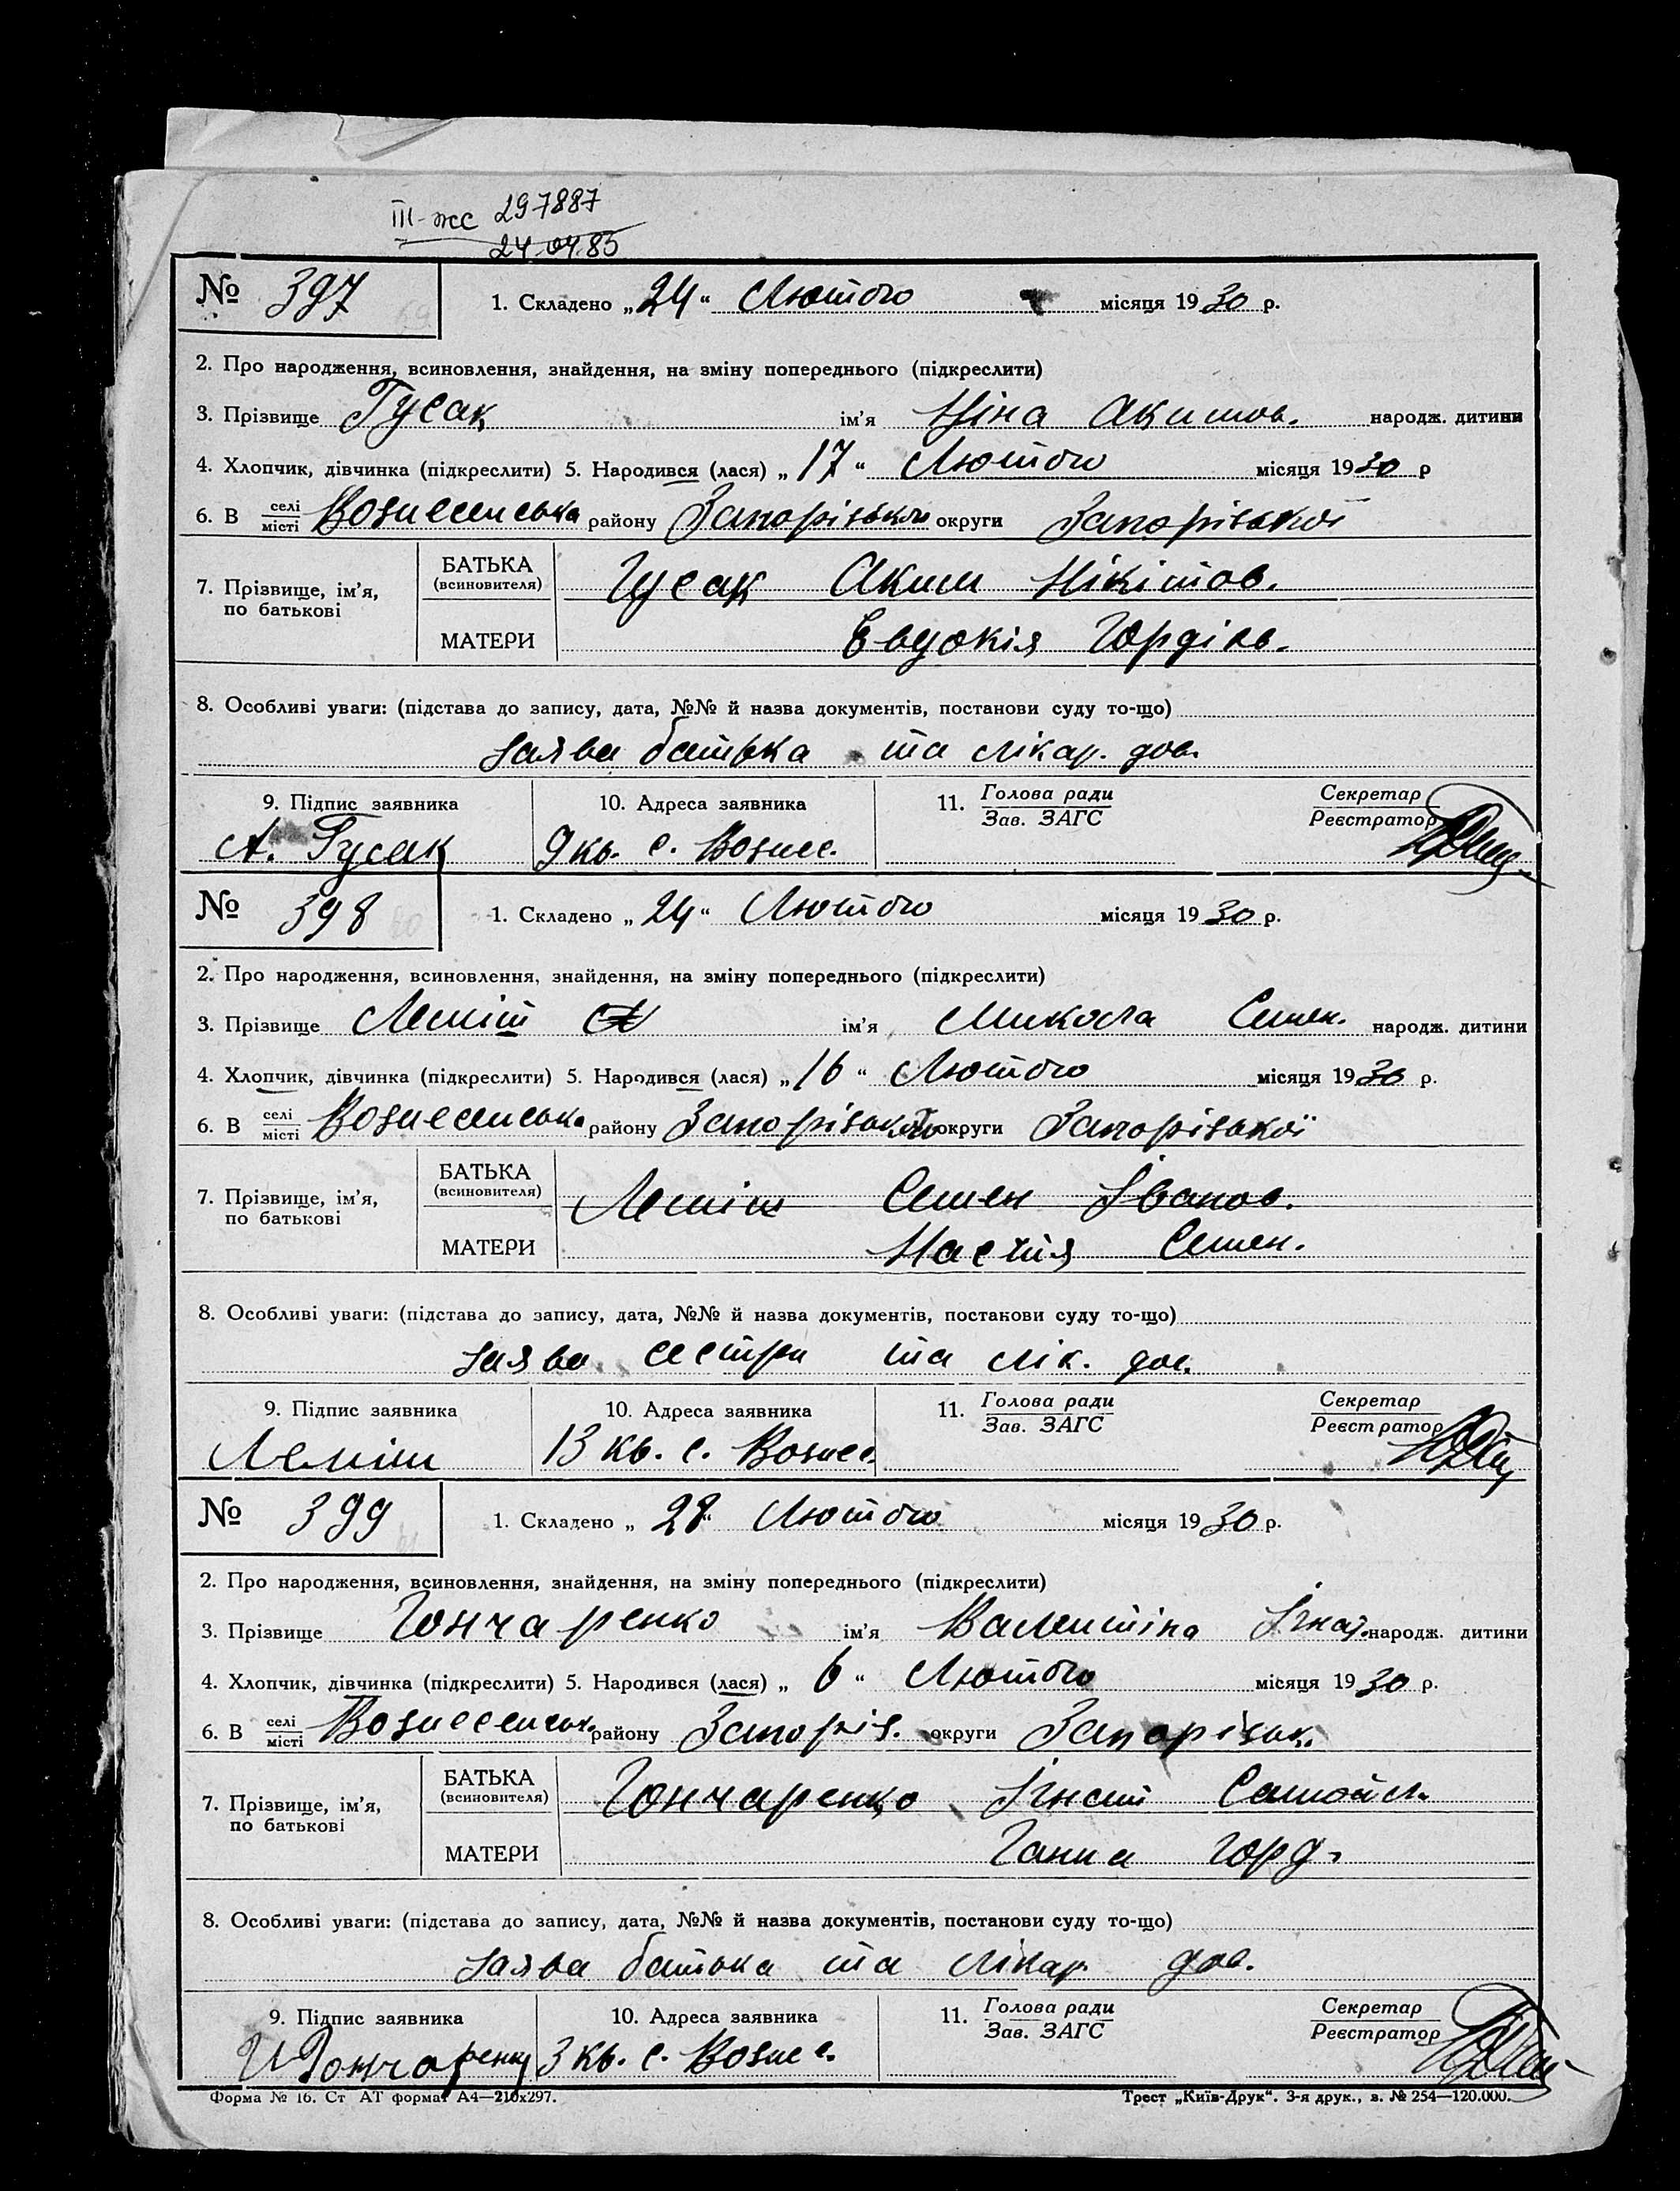 III-жс 297887
24.04.85
№ 397 1. Складено „24“ Лютого місяця 1930 р.
2. Про народження, всиновлення, знайдення, на зміну попереднього (підкреслити)
3. Прізвище Гусак ім’я Ніна Акимов. народж. дитини
4. Хлопчик, дівчинка (підкреслити) 5. Народився (лася) „17“ Лютого місяця 1930 р
6. В селі/місті Вознесенська району Запорізьком округи Запорізької
7. Прізвище, ім’я, по батькові
БАТЬКА (всиновителя) Гусак Аким Нікітов.
МАТЕРИ Евдокія Гордіев.
8. Особливі уваги: (підстава до запису, дата, №№ й назва документів, постанови суду то-що)
заява батька та лікар. дов.
9. Підпис заявника 10. Адреса заявника 11. Голова ради/Зав. ЗАГС Секретар/Реєстратор
А. Гусак 9 кв. с. Вознес.
№ 398 1. Складено „24“ Лютого місяця 1930 р.
2. Про народження, всиновлення, знайдення, на зміну попереднього (підкреслити)
3. Прізвище Леміш ім’я Микола Семен. народж. дитини
4. Хлопчик, дівчинка (підкреслити) 5. Народився (лася) „16“ Лютого місяця 1930 р.
6. В селі/місті Вознесенська району Запорізького округи Запорізької
7. Прізвище, ім’я, по батькові
БАТЬКА (всиновителя) Леміш Семен Іванов.
МАТЕРИ Настя Семен.
8. Особливі уваги: (підстава до запису, дата, №№ й назва документів, постанови суду то-що)
заява сестри та лік. дов.
9. Підпис заявника 10. Адреса заявника 11. Голова ради/Зав. ЗАГС Секретар/Реєстратор
Леміш 13 кв. с. Вознес.
№ 399 1. Складено „28“ Лютого місяця 1930 р.
2. Про народження, всиновлення, знайдення, на зміну попереднього (підкреслити)
3. Прізвище Гончаренко ім’я Валентіна Ігнат. народж. дитини
4. Хлопчик, дівчинка (підкреслити) 5. Народився (лася) „6“ Лютого місяця 1930 р.
6. В селі/місті Вознесенськ. району Запоріз. округи Запорізьк.
7. Прізвище, ім’я, по батькові
БАТЬКА (всиновителя) Гончаренко Ігнат Самойл.
МАТЕРИ Ганна Горд.
8. Особливі уваги: (підстава до запису, дата, №№ й назва документів, постанови суду то-що)
заява батька та лікар дов.
9. Підпис заявника 10. Адреса заявника 11. Голова ради/Зав. ЗАГС Секретар/Реєстратор
И Гончаренко 3 кв. с. Вознес.
Форма № 16. Ст АТ формат А4—210х297. Трест „Київ-Друк“. 3-я друк., з. № 254—120.000.